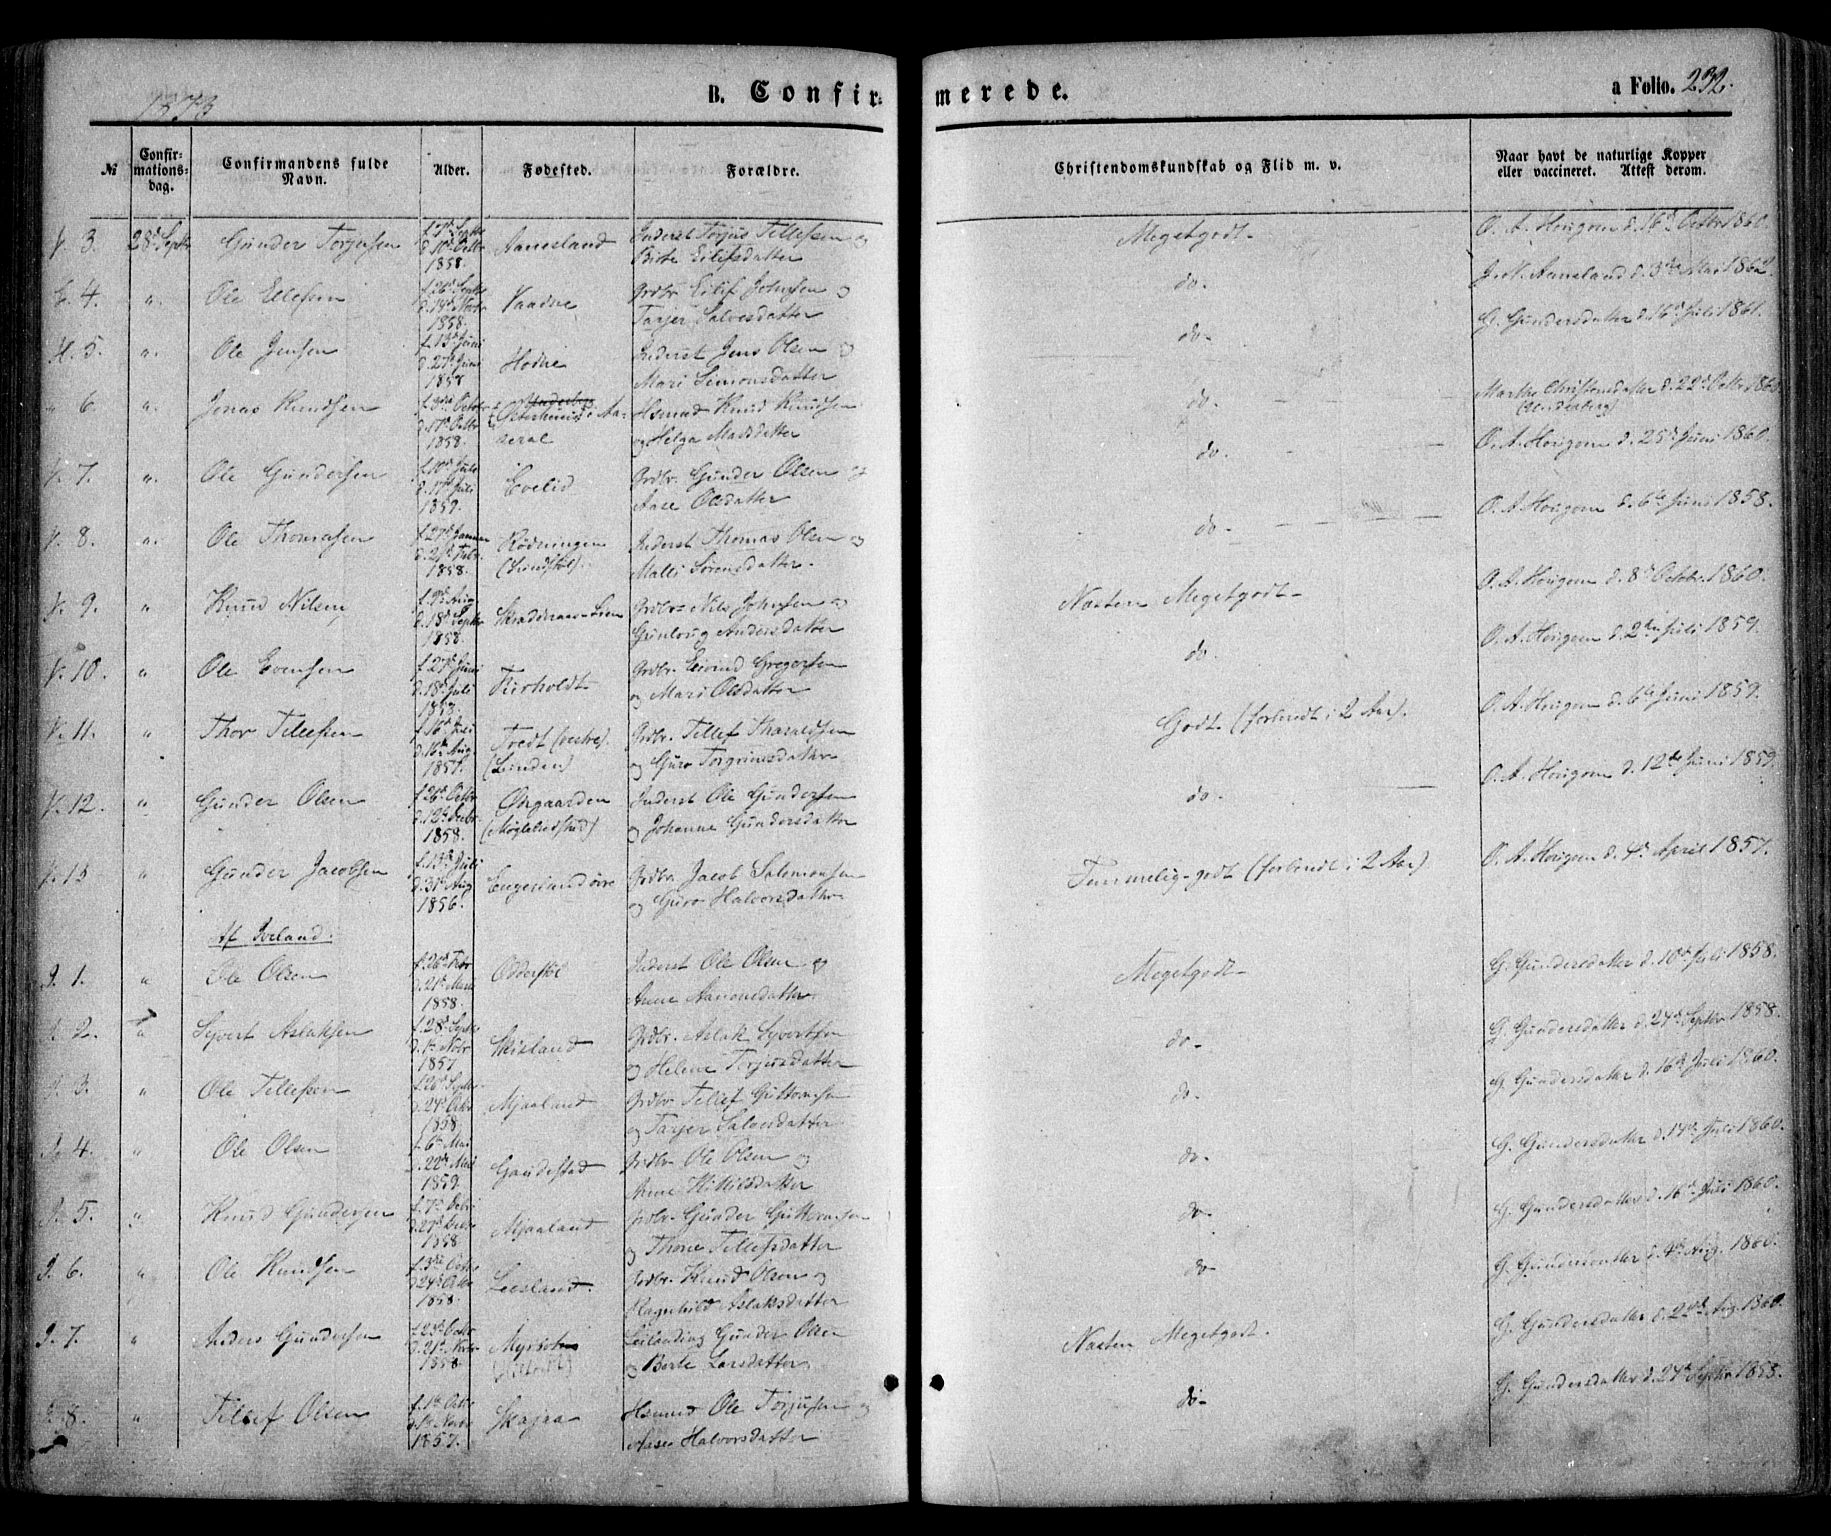 1873
B. Confirmerede.
a Folio. 232.
№
Confirmationsdag.
Confirmandens fulde Navn.
Alder.
Fødested.
Forældre.
Christendomskundskab og Flid m. v.
Naar havt de naturlige Kopper eller vaccineret. Attest derom.
3. 28d Septbr Gunder Torjussen
Aanesland
Inderst Torjus Tellefsen og
Birte Eilifsdatter
1858.
Megetgodt
O. A. Hougom d. 16d Octbr 1860.
4. " Ole Ellefsen
f. 26d Septbr
d. 14d Novbr
1858.
Vaadne
Grdbr. Eilif Johnsen og
Tarjer Salvesdatter
do.
J. N. Aanesland d. 3de Mai 1862.
5. " Ole Jensen
f. 13d Juni
d. 27d Juni
1858
Hodne
Inderst Jens Olsen og
Mari Simonsdatter
do.
G. Gundersdatter d. 16d Juli 1861.
6. " Jonas Knudsen
f. 3die Octbr
d. 17d Octbr
1858.
Aaseral
Hsmnd Knud Knudsen
og Helga Madsdatter
do.
Marthe Christensdatter d. 22d Octbr 1860
(Underberg)
7. " Ole Gundersen
f. 10d Juli
d. 17d Juli
1859.
Evelid
Grdbr. Gunder Olsen og
Aase Olsdatter
do.
O. A. Hougom d. 25d Juni 1860.
8. " Ole Thomasen
f. 27d Januar
d. 21d Febr.
1858.
Rødningen
Inderst Thomas Olsen og
Malli Sørensdatter.
do.
O. A. Hougom d. 6te Juni 1858.
9. " Knud Nilsen
d. 18d Septbr
1858.
Grdbr Nils Johnsen og
Gunloug Andersdatter
Næsten Megetgodt
O. A. Hougom d. 8d Octbr. 1860.
10. " Ole Evensen
f. 27d Juni
d. 18d Juli
Fuholdt
Grdbr. Eivind Gregersen
og Mari Olsdatter
do.
O. A. Hougom d. 2den Juli 1859.
11. " Thor Tellefsen
f. 16d Juli
d. 16d Aug.
1857.
Tvedt (vestre).
(Linden)
Grdbr. Tellef Tharaldsen
og Guro Torgrimsdatter
Godt. (forberedt i 2 Aar).
O. A. Hougom d. 6te Juni 1859.
12. " Gunder Olsen
f. 26d Octbr
1858.
Oxgaarden
(Møglebredstad)
Inderst Ole Gundersen
og Johanne Gundersdatter
do.
O. A. Hougom d. 12te Juni 1859.
13 " Gunder Jacobsen
f. 13d Juli
d. 31d Aug
1856.
Engesland øvre
Grdbr. Jacob Salomonsen
og Guro Halvorsdatter
Temmelig-godt (forberedt i 2 Aar)
O. A. Hougom d. 4d April 1857.
Af Iveland.
I. 1. " Ole Olsen
f. 26d Febr
d. 21d Marts
1858.
Odderstøl
Inderst Ole Olsen og
Anne Aanonsdatter
Megetgodt
G. Gundersdatter d. 10d Juli 1858.
I. 2. " Syvert Aslaksen
f. 28d Septbr
d. 1ste Novbr
1857
Skisland
Grdbr. Aslak Syvertsen
og Helene Torjusdatter
do
G. Gundersdatter d. 24d Septbr 1858.
I. 3. " Ole Tellefsen
f. 26d Septbr
d. 24d Octbr
1858
Mjaaland
Grdbr Tellef Guttormsen
og Tarjer Salvesdatter
do.
G. Gundersdatter d. 16d Juli 1860.
I. 4. " Ole Olsen
f. 6te Mai
d. 22de Mai
1859.
Gaudestad
Grdbr. Ole Olsen og
Anne Kittilsdatter
do.
G. Gundersdatter d. 17d Juli 1860.
I. 5. " Knud Gundersen
1858
Mjaaland
Grdbr. Gunder Guttormsen
og Thone Tellefsdatter
do.
G. Gundersdatter d. 16d Juli 1860.
I. 6. " Ole Knudsen
f. 3die Octbr
d 24d Octbr
1858.
Leesland.
Grdbr. Knud Olsen og
Ragnhild Aslaksdatter
do
G. Gundersdatter d. 4d Aug. 1860.
I. 7. " Anders Gundersen
f. 23d Octbr
d. 21d Novbr
1858
Leilænding Gunder Olsen
og Berte Larsdatter
Næsten Megetgodt.
G. Gundersdatter d. 22d Aug. 1860.
I. 8. " Tellef Olsen
f. 1ste Octbr
d. 1ste Novbr
1857.
Skajaa
Hsmnd Ole Torjusen og
Aase Halvorsdatter
do
G. Gundersdatter d. 24d Septbr 1858.